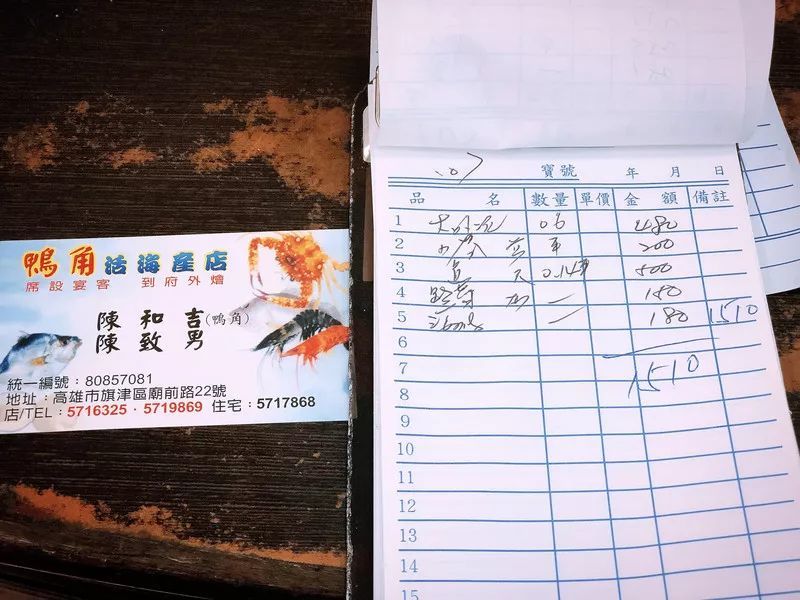 鴨角活海產店
席設宴客 到府外燴
陳和吉(鴨角)
陳致男
統一編號：80857081
地址：高雄市旗津區廟前路22號
店/TEL：5716325・5719869 住宅：5717868
寶號 年 月 日
品名 數量 單價 金額 備註
1 480
2 200
3 500
4 150
5 180 1510
6
7 1510
8
9
10
11
12
13
14
15